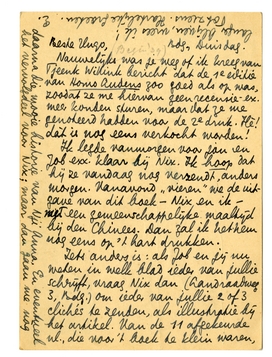 Beste Hugo,
Rdg, Dinsdag.
Nauwelijks was je weg of ik kreeg van
Tjeenk Willink bericht dat de 1e editie
van Homo Ludens zoo goed als op was,
zoodat ze me hiervan geen recensie-ex-
meer konden sturen, maar dat ze me
genoteerd hadden voor de 2e druk. Hè!
dàt is nog eens verkocht worden!
Ik legde vanmorgen voor jou en
Job ex. klaar bij Nix. Ik hoop dat
hij ze vandaag nog verzendt, anders
morgen. Vanavond "vieren" we de uit-
gave van dit boek - Nix en ik -
met een gemeenschappelijke maaltijd
bij den Chinees. Dan zal ik het hem
nog eens op 't hart drukken.
Iets anders is: als Job en jij nu
weten in welk blad ieder van jullie
schrijft, vraag Nix dan
3, Rdg.) om ieder van jullie 2 of 3
cliché's te zenden, als illustratie bij
het artikel. Van de 11 afgekeurde
nl., die voor 't boek te klein waren,
daarna die mooie historie van Mij
En eventueel
het vermeldde voor Nix; maar dan gaan we nog